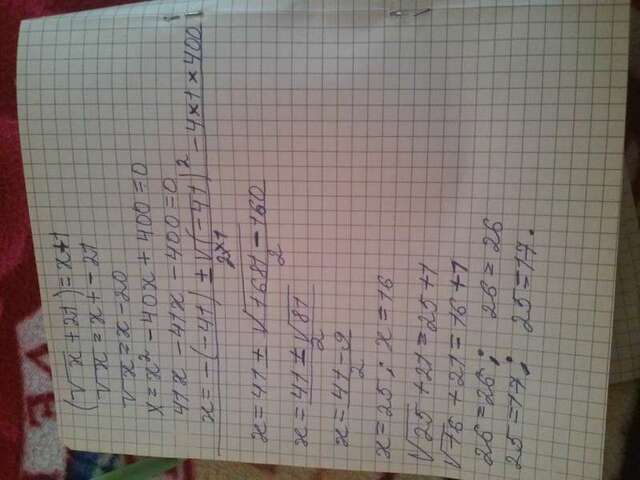 (√x + 21) = x+1
√x = x + - 21
√x = x - 20
x = x² - 40x + 400 = 0
41x - 41x - 400 = 0
x = -(-41) ± √(-41)² - 4×1×400
2×1
x = 41 ± √1681 - 160
2
x = 41 ± √81
2
x = 41 - 9
2
x = 25 ; x = 16
√25 + 21 = 25 + 1
√16 + 21 = 16 + 1
26 = 26 ; 26 = 26
25 = 17 ; 25 = 17.